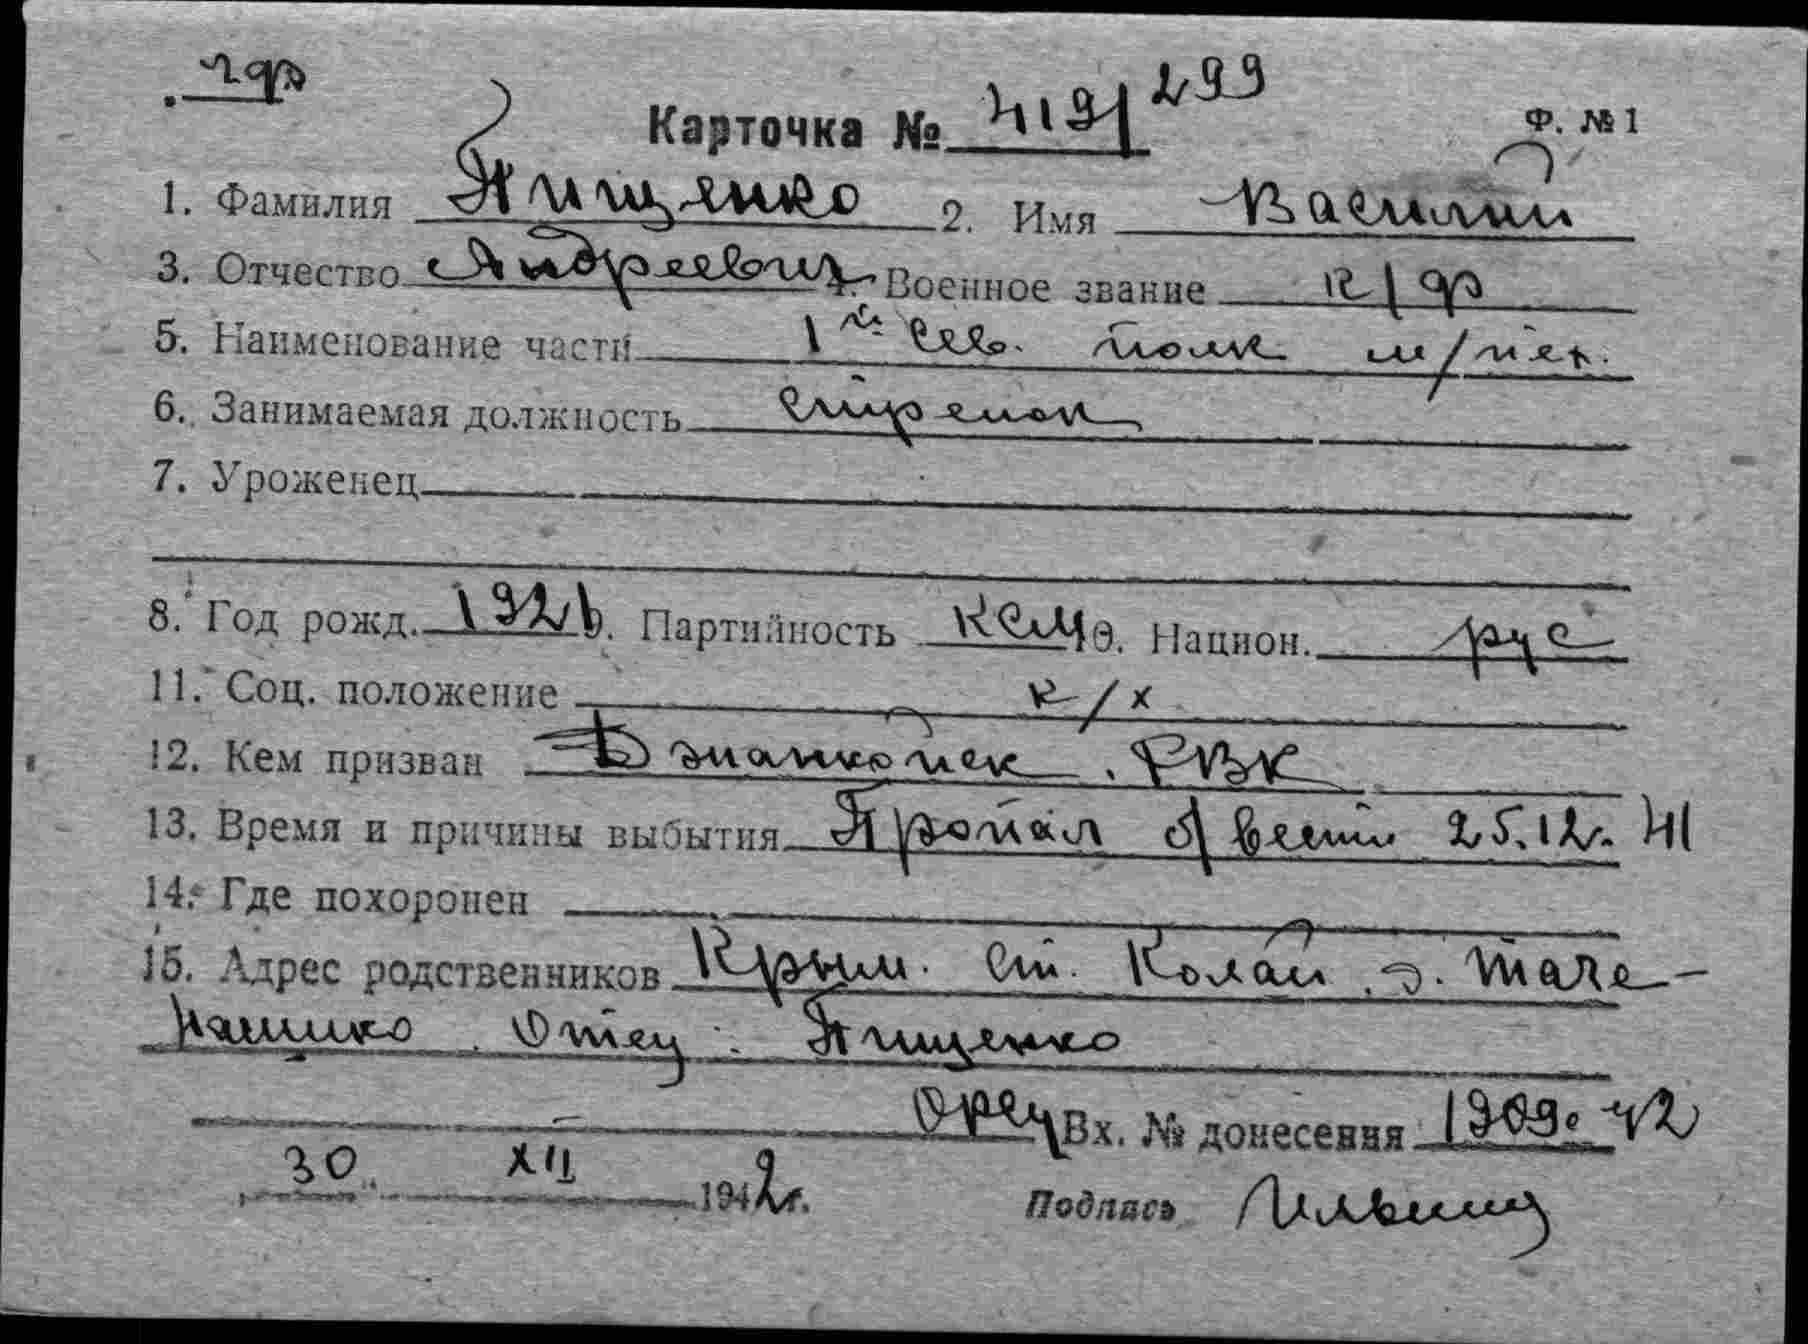 Карточка № 419/299
Ф. № 1
1. Фамилия Пищенко 2. Имя Василий
3. Отчество Андреевич 4. Военное звание к/ф
5. Наименование части 1й Сев. полк м/пех.
6. Занимаемая должность Стрелок
7. Уроженец
8. Год рожд. 1921 9. Партийность КСМ 10. Национ. рус
11. Соц. положение к/х
12. Кем призван Джанкойск. РВК
13. Время и причины выбытия Пропал б/вести 25.12.41
14. Где похоронен
15. Адрес родственников Крым. ст. Колай д.
Отец: Пищенко
Вх. № донесения 1909с 42
30 XII 1942г.
Подпись Ильина